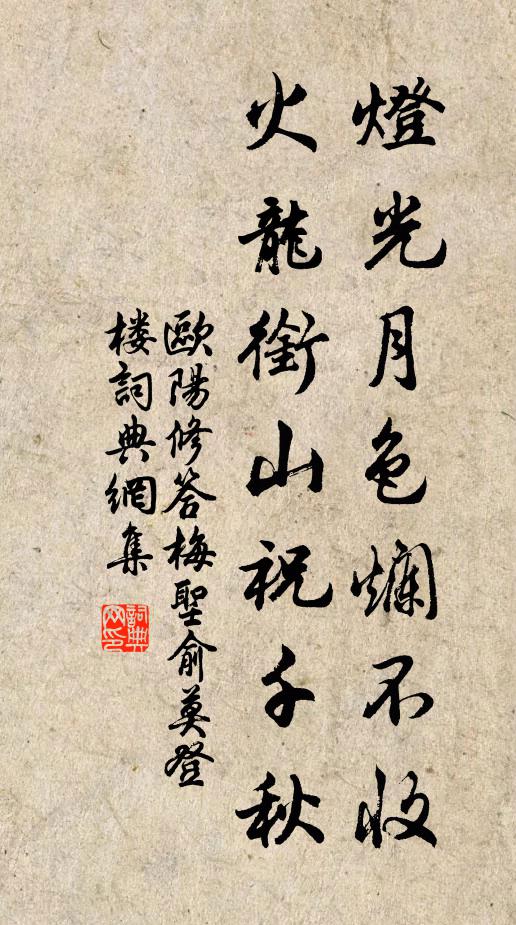 燈光月色爛不收
火龍銜山祝千秋
歐陽修答梅聖俞莫登
楼詞典網集
詞典
网印